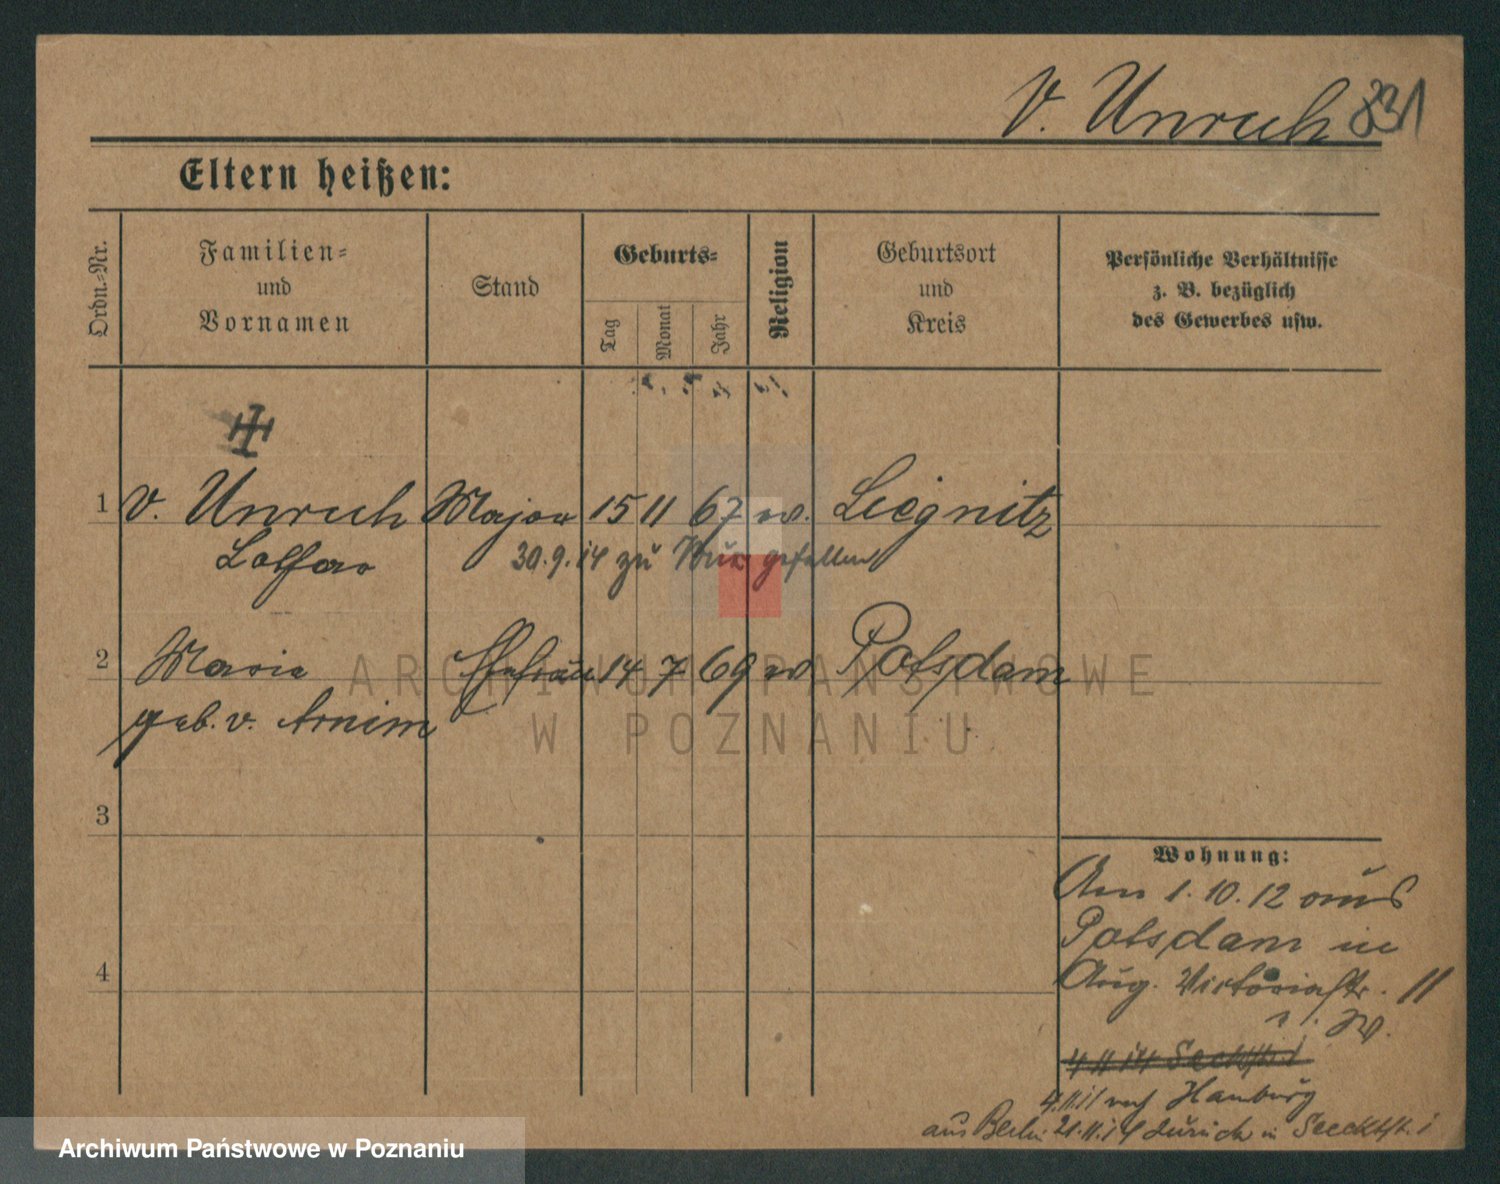 v. Unruh 831
Eltern heißen:
Ordn.-Nr.
Familien-
und
Vornamen
Stand
Geburts-
Tag
Monat
Jahr
Religion
Geburtsort
und
Kreis
Persönliche Verhältnisse
z. B. bezüglich
des Gewerbes usw.
1 v. Unruh Major 15 11 67 ev. Liegnitz
Lothar 30.9.14 zu gefallen
2 Maria Ehefrau 14 7 69 ev Potsdam
geb. v. Arnim
3
4
Wohnung:
Am 1.10.12 aus
Potsdam in
Aug. Victoriastr. 11
4.11.14 Seecktstr. 1
4.11.14 nach Hamburg
aus Berlin 21.11.14 zurück in Seecktstr. 1
ARCHIWUM PAŃSTWOWE
W POZNANIU
Archiwum Państwowe w Poznaniu